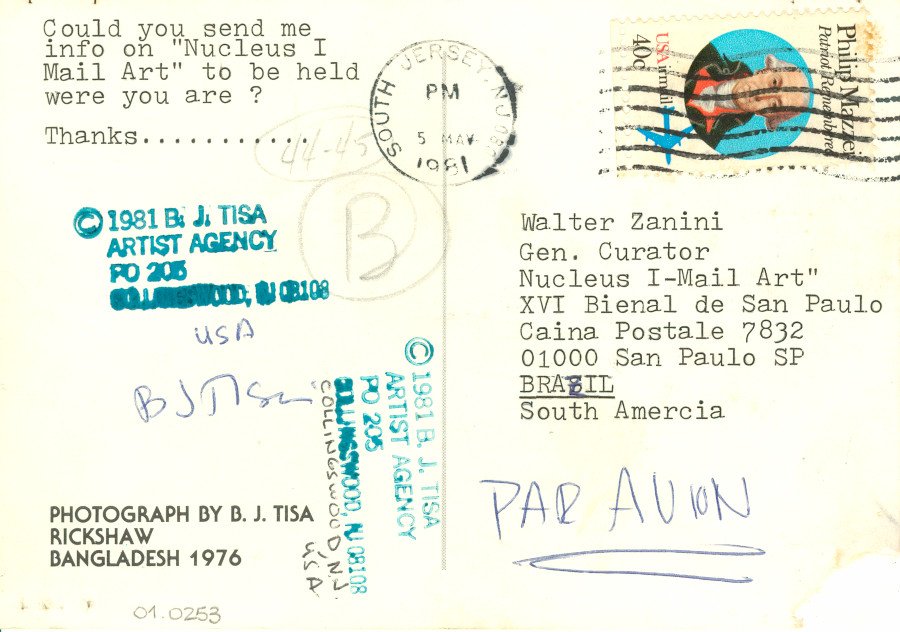 Could you send me
info on "Nucleus I
Mail Art" to be held
were you are ?
Thanks...........
44-45
B
SOUTH JERSEY, NJ
PM
5 MAY
1981
Philip Mazzei
Patriot Remembered
USA airmail
40c
© 1981 B. J. TISA
ARTIST AGENCY
PO 205
COLLINGSWOOD, NJ 08108
USA
B J Tisa
© 1981 B. J. TISA
ARTIST AGENCY
PO 205
COLLINGSWOOD, NJ 08108
COLLINGSWOOD, N.J.
USA
Walter Zanini
Gen. Curator
Nucleus I-Mail Art"
XVI Bienal de San Paulo
Caina Postale 7832
01000 San Paulo SP
BRAZIL
South Amercia
PAR AVION
PHOTOGRAPH BY B. J. TISA
RICKSHAW
BANGLADESH 1976
01.0253